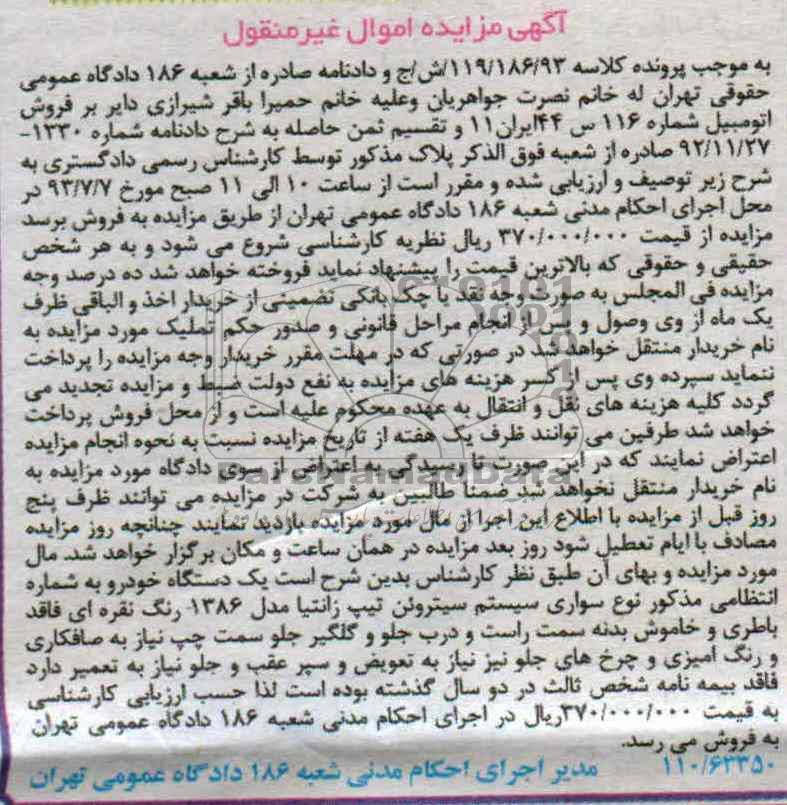 آگهی مزایده اموال غیرمنقول
به موجب پرونده کلاسه ۱۱۹/۱۸۶/۹۳/ش/ج و دادنامه صادره از شعبه ۱۸۶ دادگاه عمومی
حقوقی تهران له خانم نصرت جواهریان وعلیه خانم حمیرا باقر شیرازی دایر بر فروش
اتومبیل شماره ۱۱۶ س ۴۴ایران۱۱ و تقسیم ثمن حاصله به شرح دادنامه شماره ۱۳۳۰-
۹۲/۱۱/۲۷ صادره از شعبه فوق الذکر پلاک مذکور توسط کارشناس رسمی دادگستری به
شرح زیر توصیف و ارزیابی شده و مقرر است از ساعت ۱۰ الی ۱۱ صبح مورخ ۹۳/۷/۷ در
محل اجرای احکام مدنی شعبه ۱۸۶ دادگاه عمومی تهران از طریق مزایده به فروش برسد
مزایده از قیمت ۳۷۰/۰۰۰/۰۰۰ ریال نظریه کارشناسی شروع می شود و به هر شخص
حقیقی و حقوقی که بالاترین قیمت را پیشنهاد نماید فروخته خواهد شد ده درصد وجه
مزایده فی المجلس به صورت وجه نقد یا چک بانکی تضمینی از خریدار اخذ و الباقی ظرف
یک ماه از وی وصول و پس از انجام مراحل قانونی و صدور حکم تملیک مورد مزایده به
نام خریدار منتقل خواهد شد در صورتی که در مهلت مقرر خریدار وجه مزایده را پرداخت
ننماید سپرده وی پس از کسر هزینه های مزایده به نفع دولت ضبط و مزایده تجدید می
گردد کلیه هزینه های نقل و انتقال به عهده محکوم علیه است و از محل فروش پرداخت
خواهد شد طرفین می توانند ظرف یک هفته از تاریخ مزایده نسبت به نحوه انجام مزایده
اعتراض نمایند که در این صورت تا رسیدگی به اعتراض از سوی دادگاه مورد مزایده به
نام خریدار منتقل نخواهد شد ضمنا طالبین به شرکت در مزایده می توانند ظرف پنج
روز قبل از مزایده با اطلاع این اجرا از مال مورد مزایده بازدید نمایند چنانچه روز مزایده
مصادف با ایام تعطیل شود روز بعد مزایده در همان ساعت و مکان برگزار خواهد شد. مال
مورد مزایده و بهای آن طبق نظر کارشناس بدین شرح است یک دستگاه خودرو به شماره
انتظامی مذکور نوع سواری سیستم سیتروئن تیپ زانتیا مدل ۱۳۸۶ رنگ نقره ای فاقد
باطری و خاموش بدنه سمت راست و درب جلو و گلگیر جلو سمت چپ نیاز به صافکاری
و رنگ امیزی و چرخ های جلو نیز نیاز به تعویض و سپر عقب و جلو نیاز به تعمیر دارد
فاقد بیمه نامه شخص ثالث در دو سال گذشته بوده است لذا حسب ارزیابی کارشناسی
به قیمت ۳۷۰/۰۰۰/۰۰۰ریال در اجرای احکام مدنی شعبه ۱۸۶ دادگاه عمومی تهران
به فروش می رسد.
۱۱۰/۶۳۳۵۰ مدیر اجرای احکام مدنی شعبه ۱۸۶ دادگاه عمومی تهران
ParsNamadData